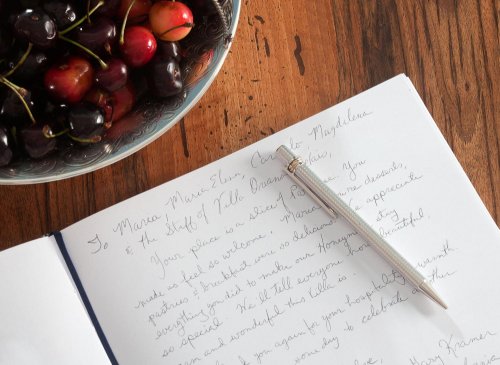 To Marca, Maria Elena, Carlo, Magdilena
& the Staff of Villa
Your place is a slice of Paradise. You
made us feel so welcome. Maria desserts,
pastries & breakfast were so delicious. We appreciate
everything you did to make our Honeymoon stay
so special. We'll tell everyone how beautiful,
and wonderful this Villa is.
you again for your hospitality & warmth
some day to celebrate another
Love,
Mary Kramer